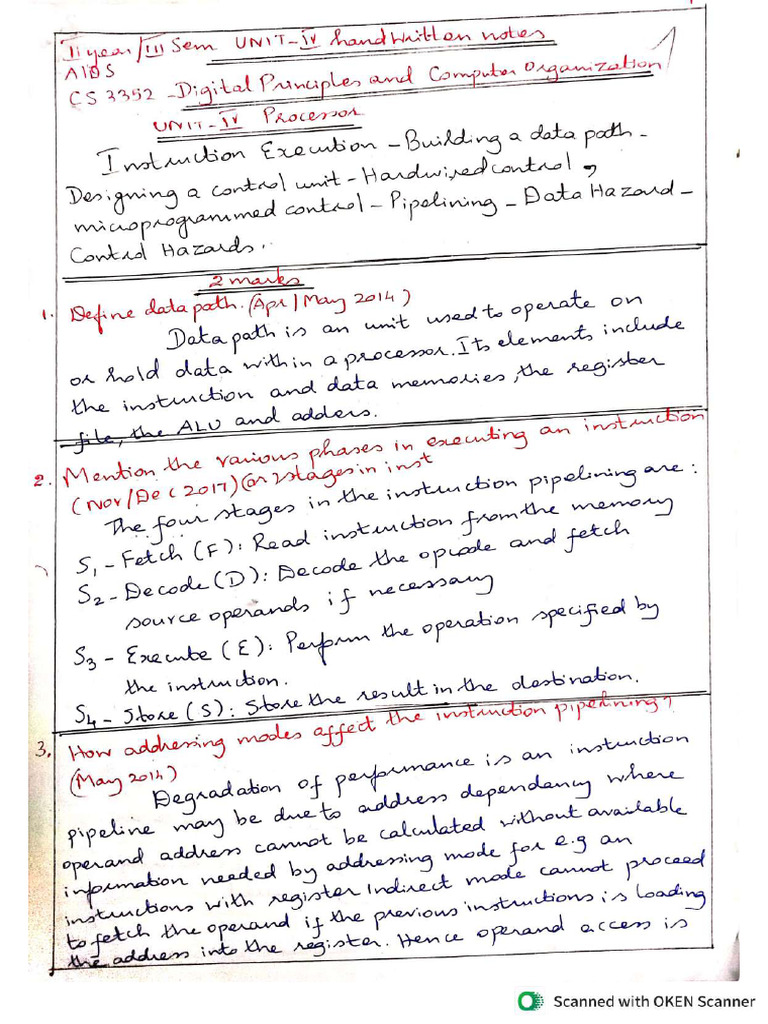 II year/III Sem UNIT-IV handwritten notes
AIDS
1
CS 3352 -Digital Principles and Computer Organization
UNIT-IV Processor
Instruction Execution - Building a data path -
Designing a control unit - Hardwired control,
microprogrammed control - Pipelining - Data Hazard -
Control Hazards.
2 marks
1. Define data path. (Apr/May 2014)
Data path is an unit used to operate on
or hold data within a processor. Its elements include
the instruction and data memories, the register
file, the ALU and adders.
2. Mention the various phases in executing an instruction
(Nov/Dec 2017) (or) stages in inst
The four stages in the instruction pipelining are:
S1 - Fetch (F): Read instruction from the memory
S2 - Decode (D): Decode the opcode and fetch
source operands if necessary
S3 - Execute (E): Perform the operation specified by
the instruction.
S4 - Store (S): Store the result in the destination.
3. How addressing modes affect the instruction pipelining?
(May 2014)
Degradation of performance is an instruction
pipeline may be due to address dependancy where
operand address cannot be calculated without available
information needed by addressing mode for e.g an
instructions with register Indirect mode cannot proceed
to fetch the operand if the previous instructions is loading
the address into the register. Hence operand access is
Scanned with OKEN Scanner